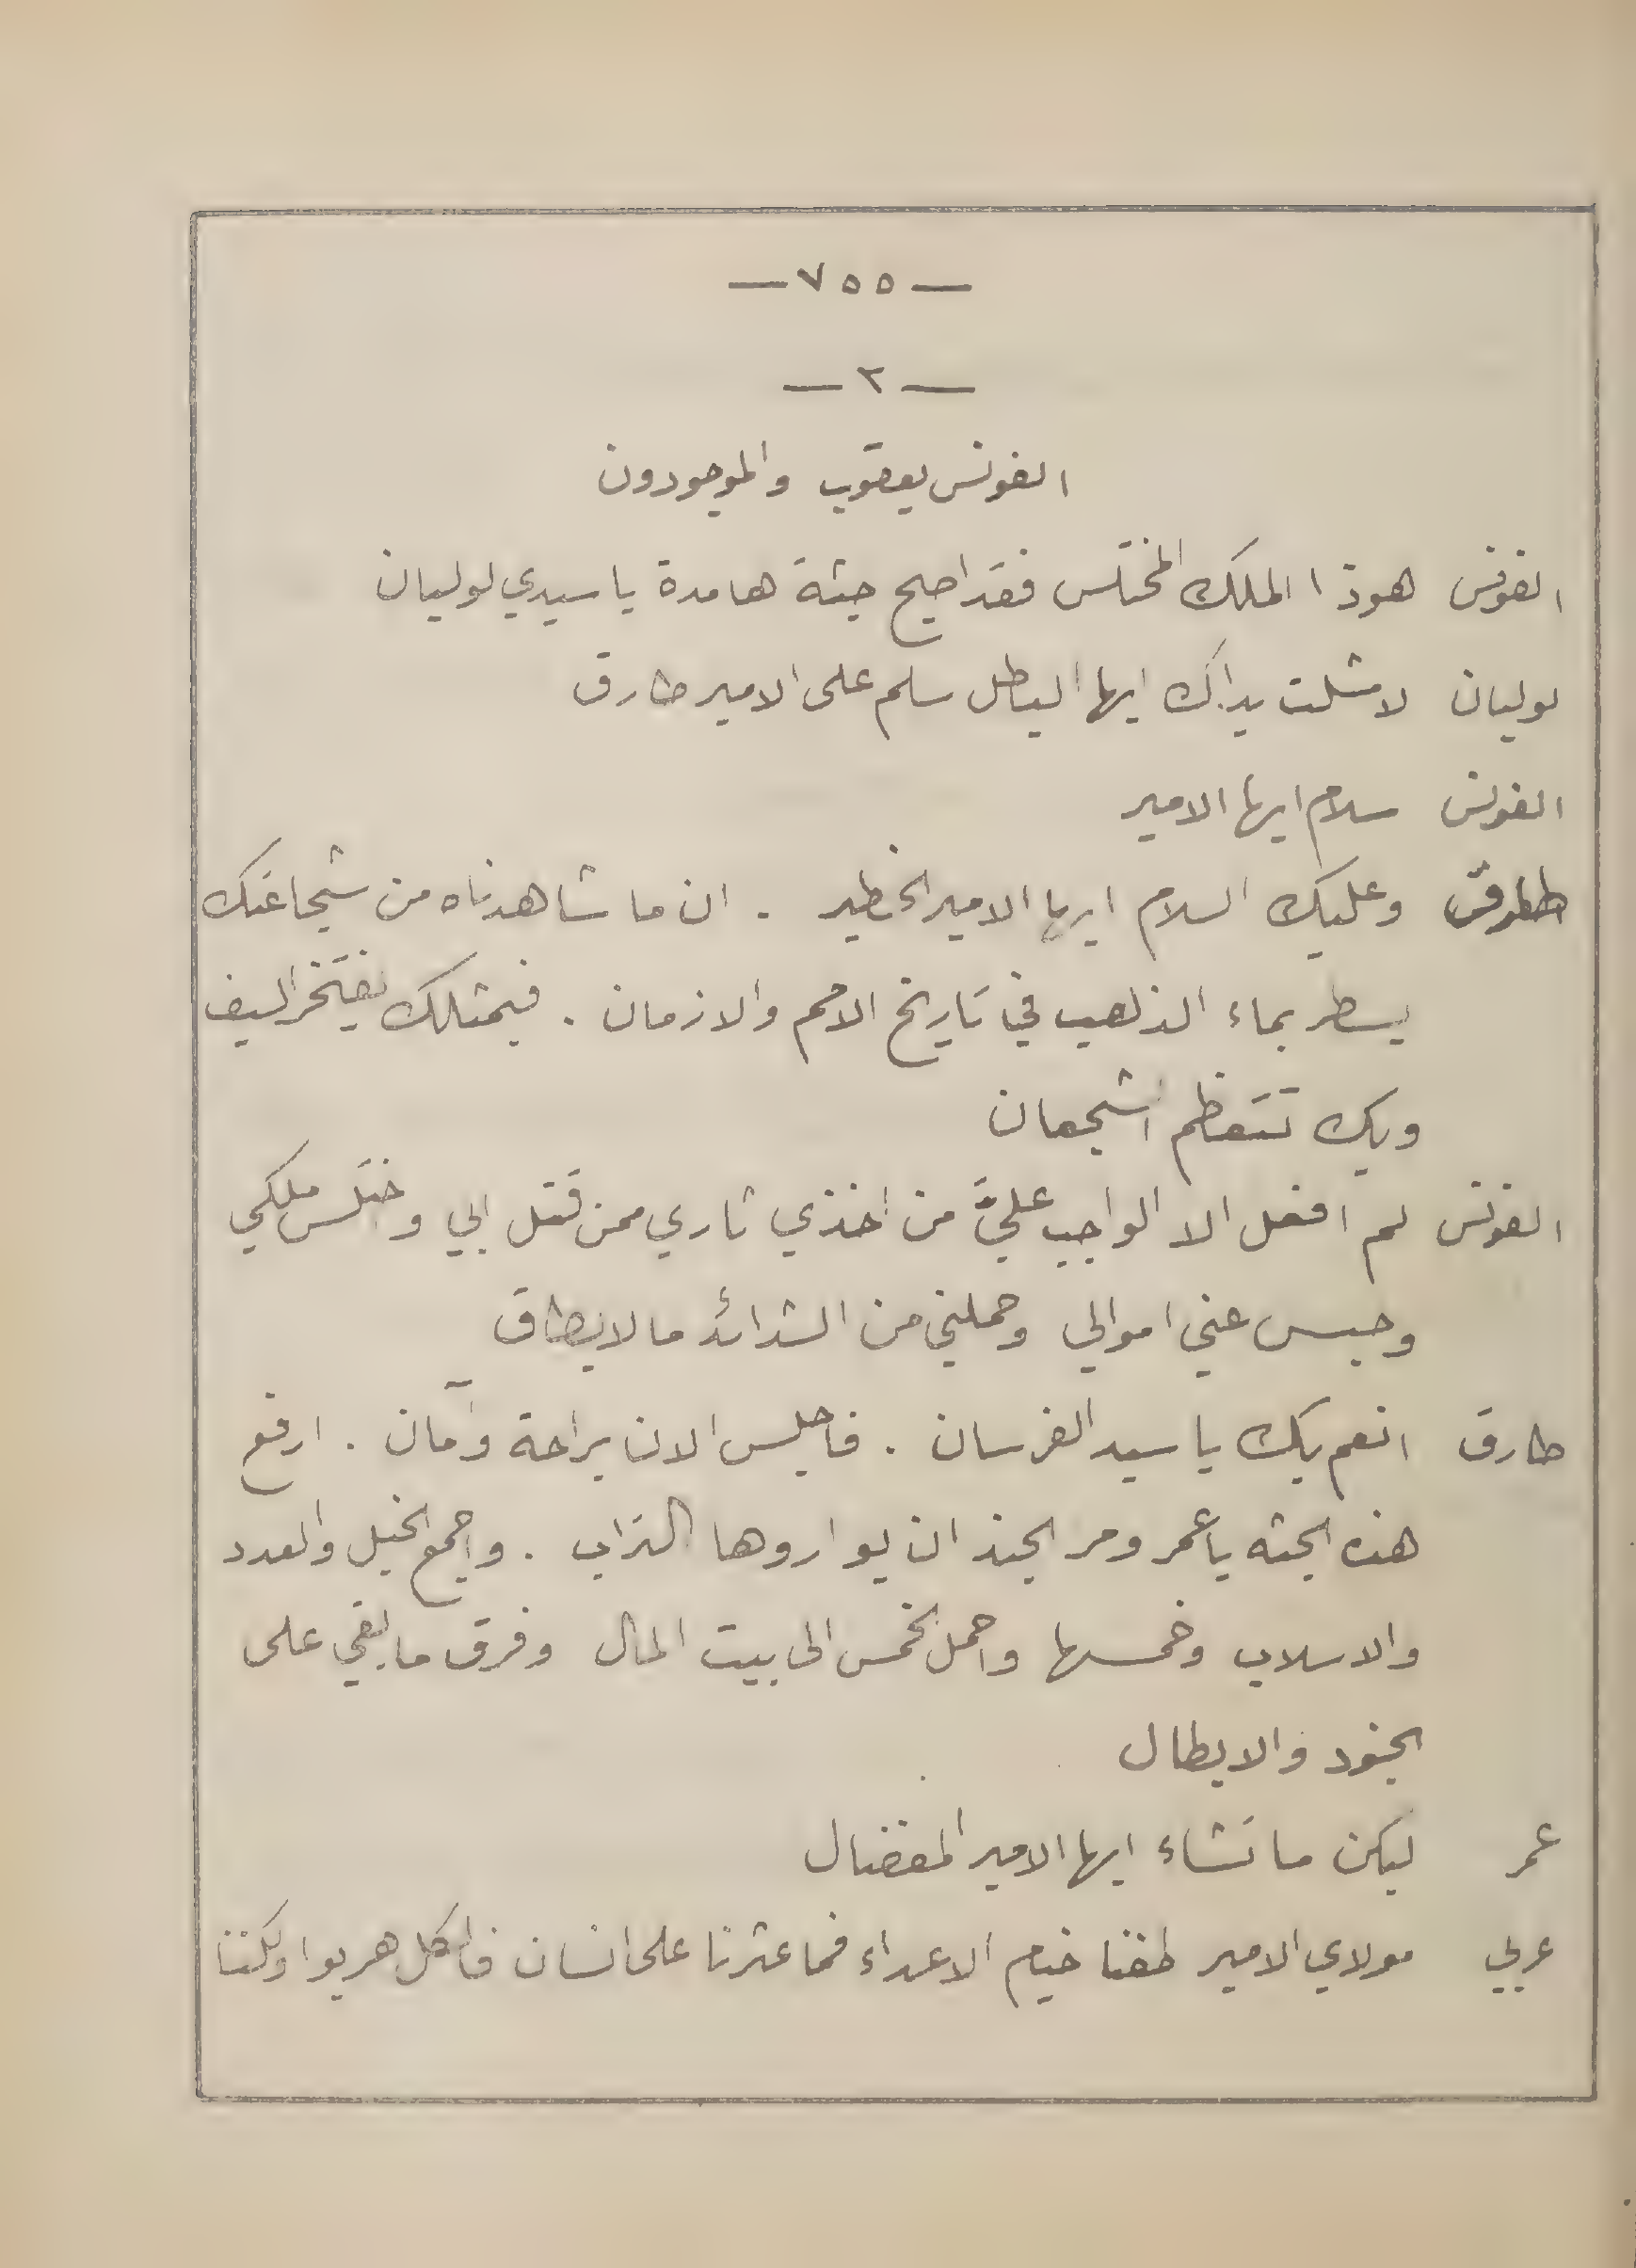 — ٧٥٥ —
— ٢ —
الفونس يعقوب والموجودون
الفونس هوذا الملك المختلس فقد اصبح جثة هامدة يا سيدي لوليان
لوليان لا شلت يداك ايها البطل سلم على الامير طارق
الفونس سلام ايها الامير
طارق وعليك السلام ايها الامير الخطير . ان ما شاهدناه من شجاعتك
يسطر بماء الذهب في تاريخ الامم والازمان . فبمثلك يفتخر السيف
وبك تتعظم الشجعان
الفونس لم افعل الا الواجب عليَّ من اخذي ثاري ممن قتل ابي وختلس ملكي
وحبس عني اموالي وحملني من الشدائد ما لا يطاق
طارق انعم بك يا سيد الفرسان . فاجلس الان براحة وآمان . ارفع
هذه الجثه يا عمر ومر الجند ان يواروها التراب . واجمع الخيل والعدد
والاسلاب وخمسها واحمل الخمس الى بيت المال وفرق ما بقي على
الجنود والابطال
عمر ليكن ما تشاء ايها الامير المفضال
عربي مولاي الامير طفنا خيام الاعداء فما عثرنا على انسان فالكل هربوا ولكننا